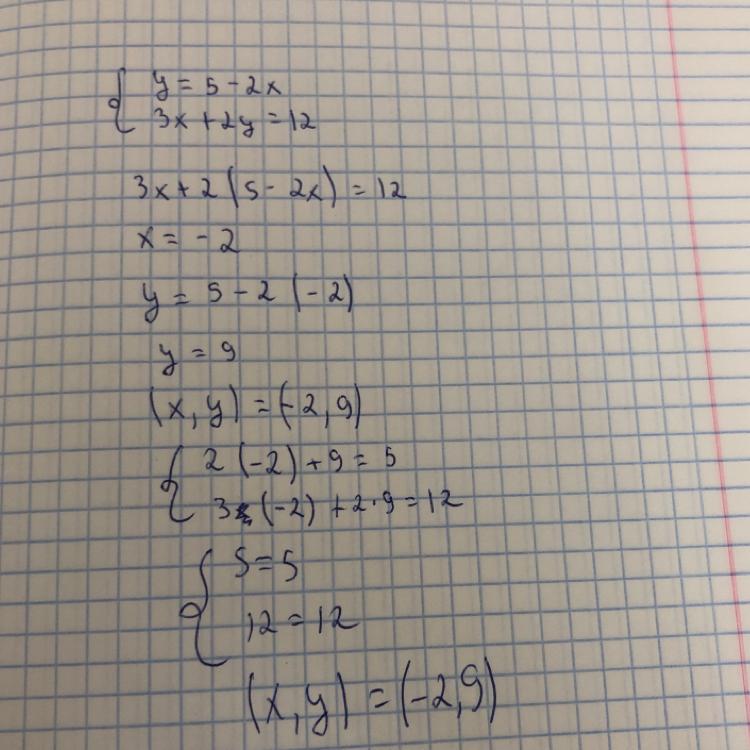 { y = 5 - 2x
3x + 2y = 12
3x + 2 (5 - 2x) = 12
x = -2
y = 5 - 2 (-2)
y = 9
(x, y) = (-2, 9)
{ 2 (-2) + 9 = 5
3 (-2) + 2·9 = 12
{ 5 = 5
12 = 12
(x, y) = (-2, 9)